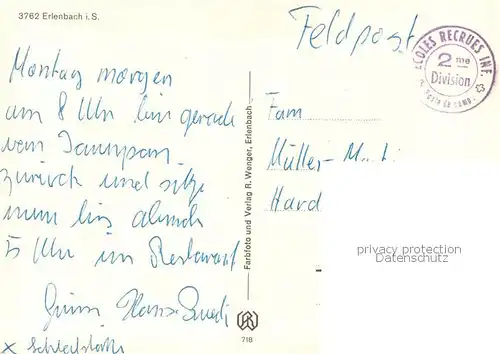 3762 Erlenbach i. S.
Feldpost
ECOLES RECRUES INF.
2me
Division
Montag morgen
am 8 Uhr bin gerade
vom Jaunpass
zurück und sitze
nun bis abends
5 Uhr im Restaurant
Hans-Ruedi
Fam
Müller-
Hard
privacy protection
Datenschutz
Farbfoto und Verlag R. Wenger, Erlenbach
718